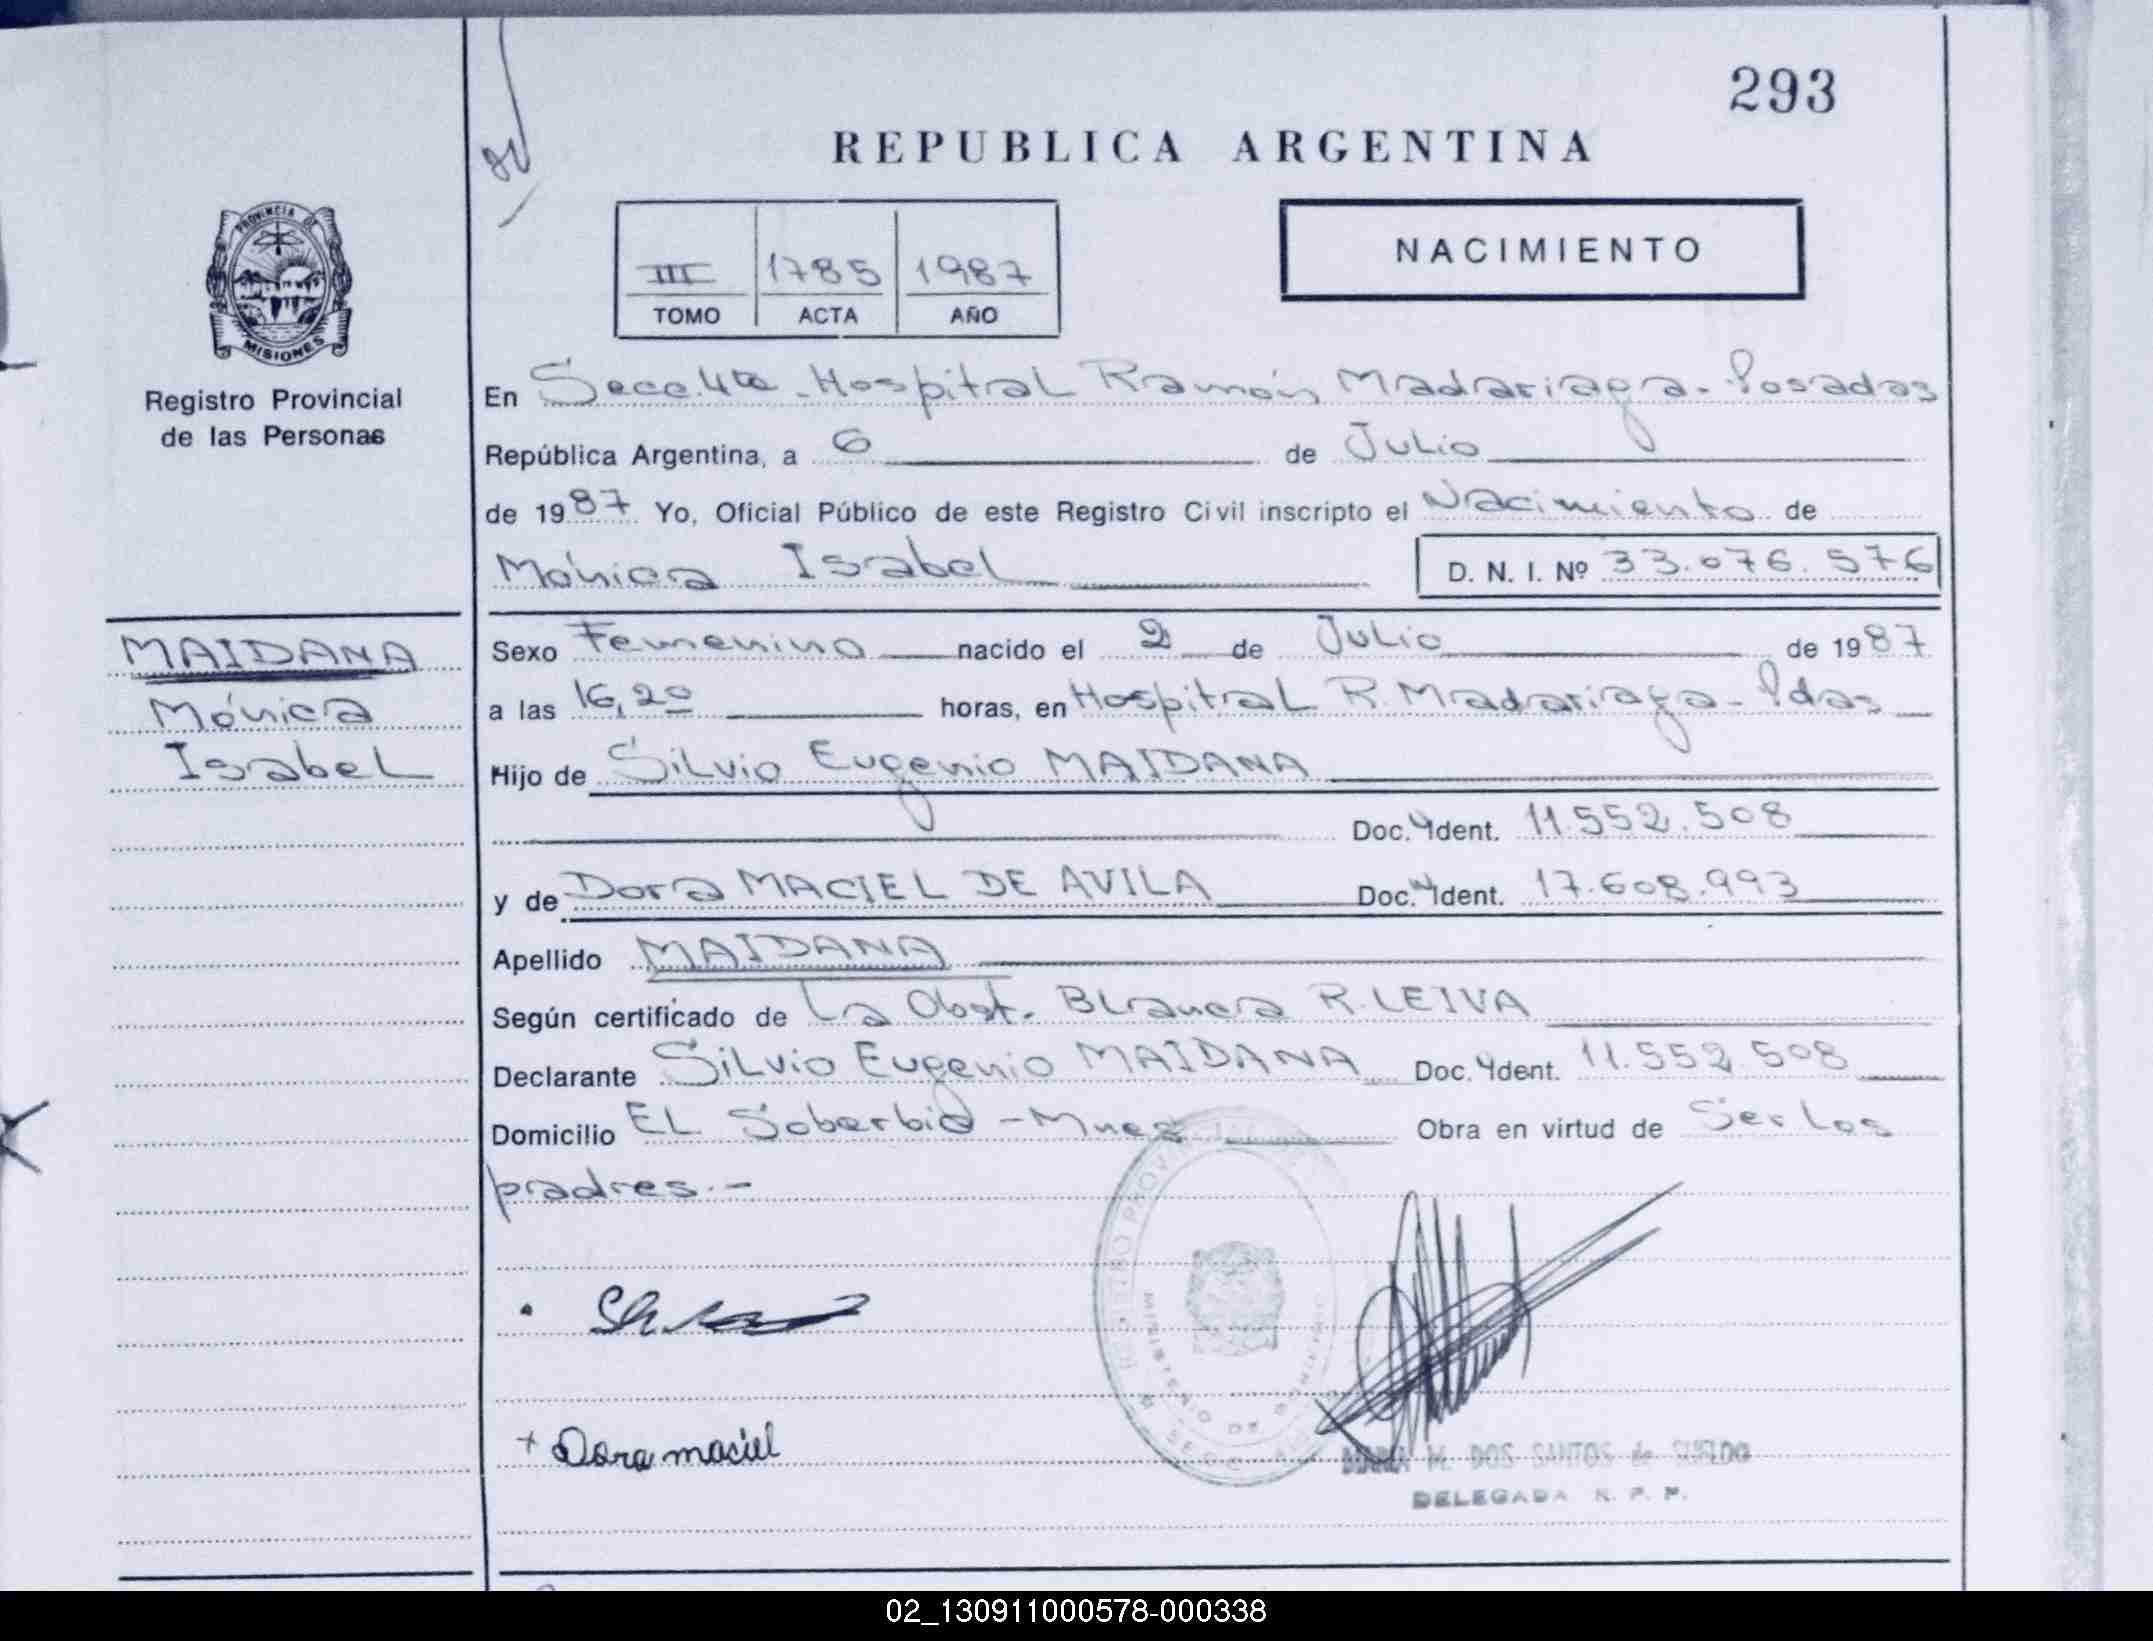 293
REPUBLICA ARGENTINA
PROVINCIA DE
MISIONES
Registro Provincial
de las Personas
III 1785 1987
TOMO ACTA AÑO
NACIMIENTO
En Secc. 4ta - Hospital Ramón Madariaga - Posadas
República Argentina, a 6 de Julio
de 1987 Yo, Oficial Público de este Registro Civil inscripto el Nacimiento de
Mónica Isabel D. N. I. Nº 33.076.576
MAIDANA
Mónica
Isabel
Sexo Femenino nacido el 2 de Julio de 1987
a las 16,20 horas, en Hospital R. Madariaga - Pdas
Hijo de Silvio Eugenio MAIDANA
Doc. Ident. 11.552.508
y de Dora MACIEL DE AVILA Doc. Ident. 17.608.993
Apellido MAIDANA
Según certificado de La Obst. Blanca R. LEIVA
Declarante Silvio Eugenio MAIDANA Doc. Ident. 11.552.508
Domicilio EL Soberbio - Mnes Obra en virtud de Ser los
padres.-
Dora maciel
MINISTERIO DE
M. DOS SANTOS de
DELEGADA
02_130911000578-000338